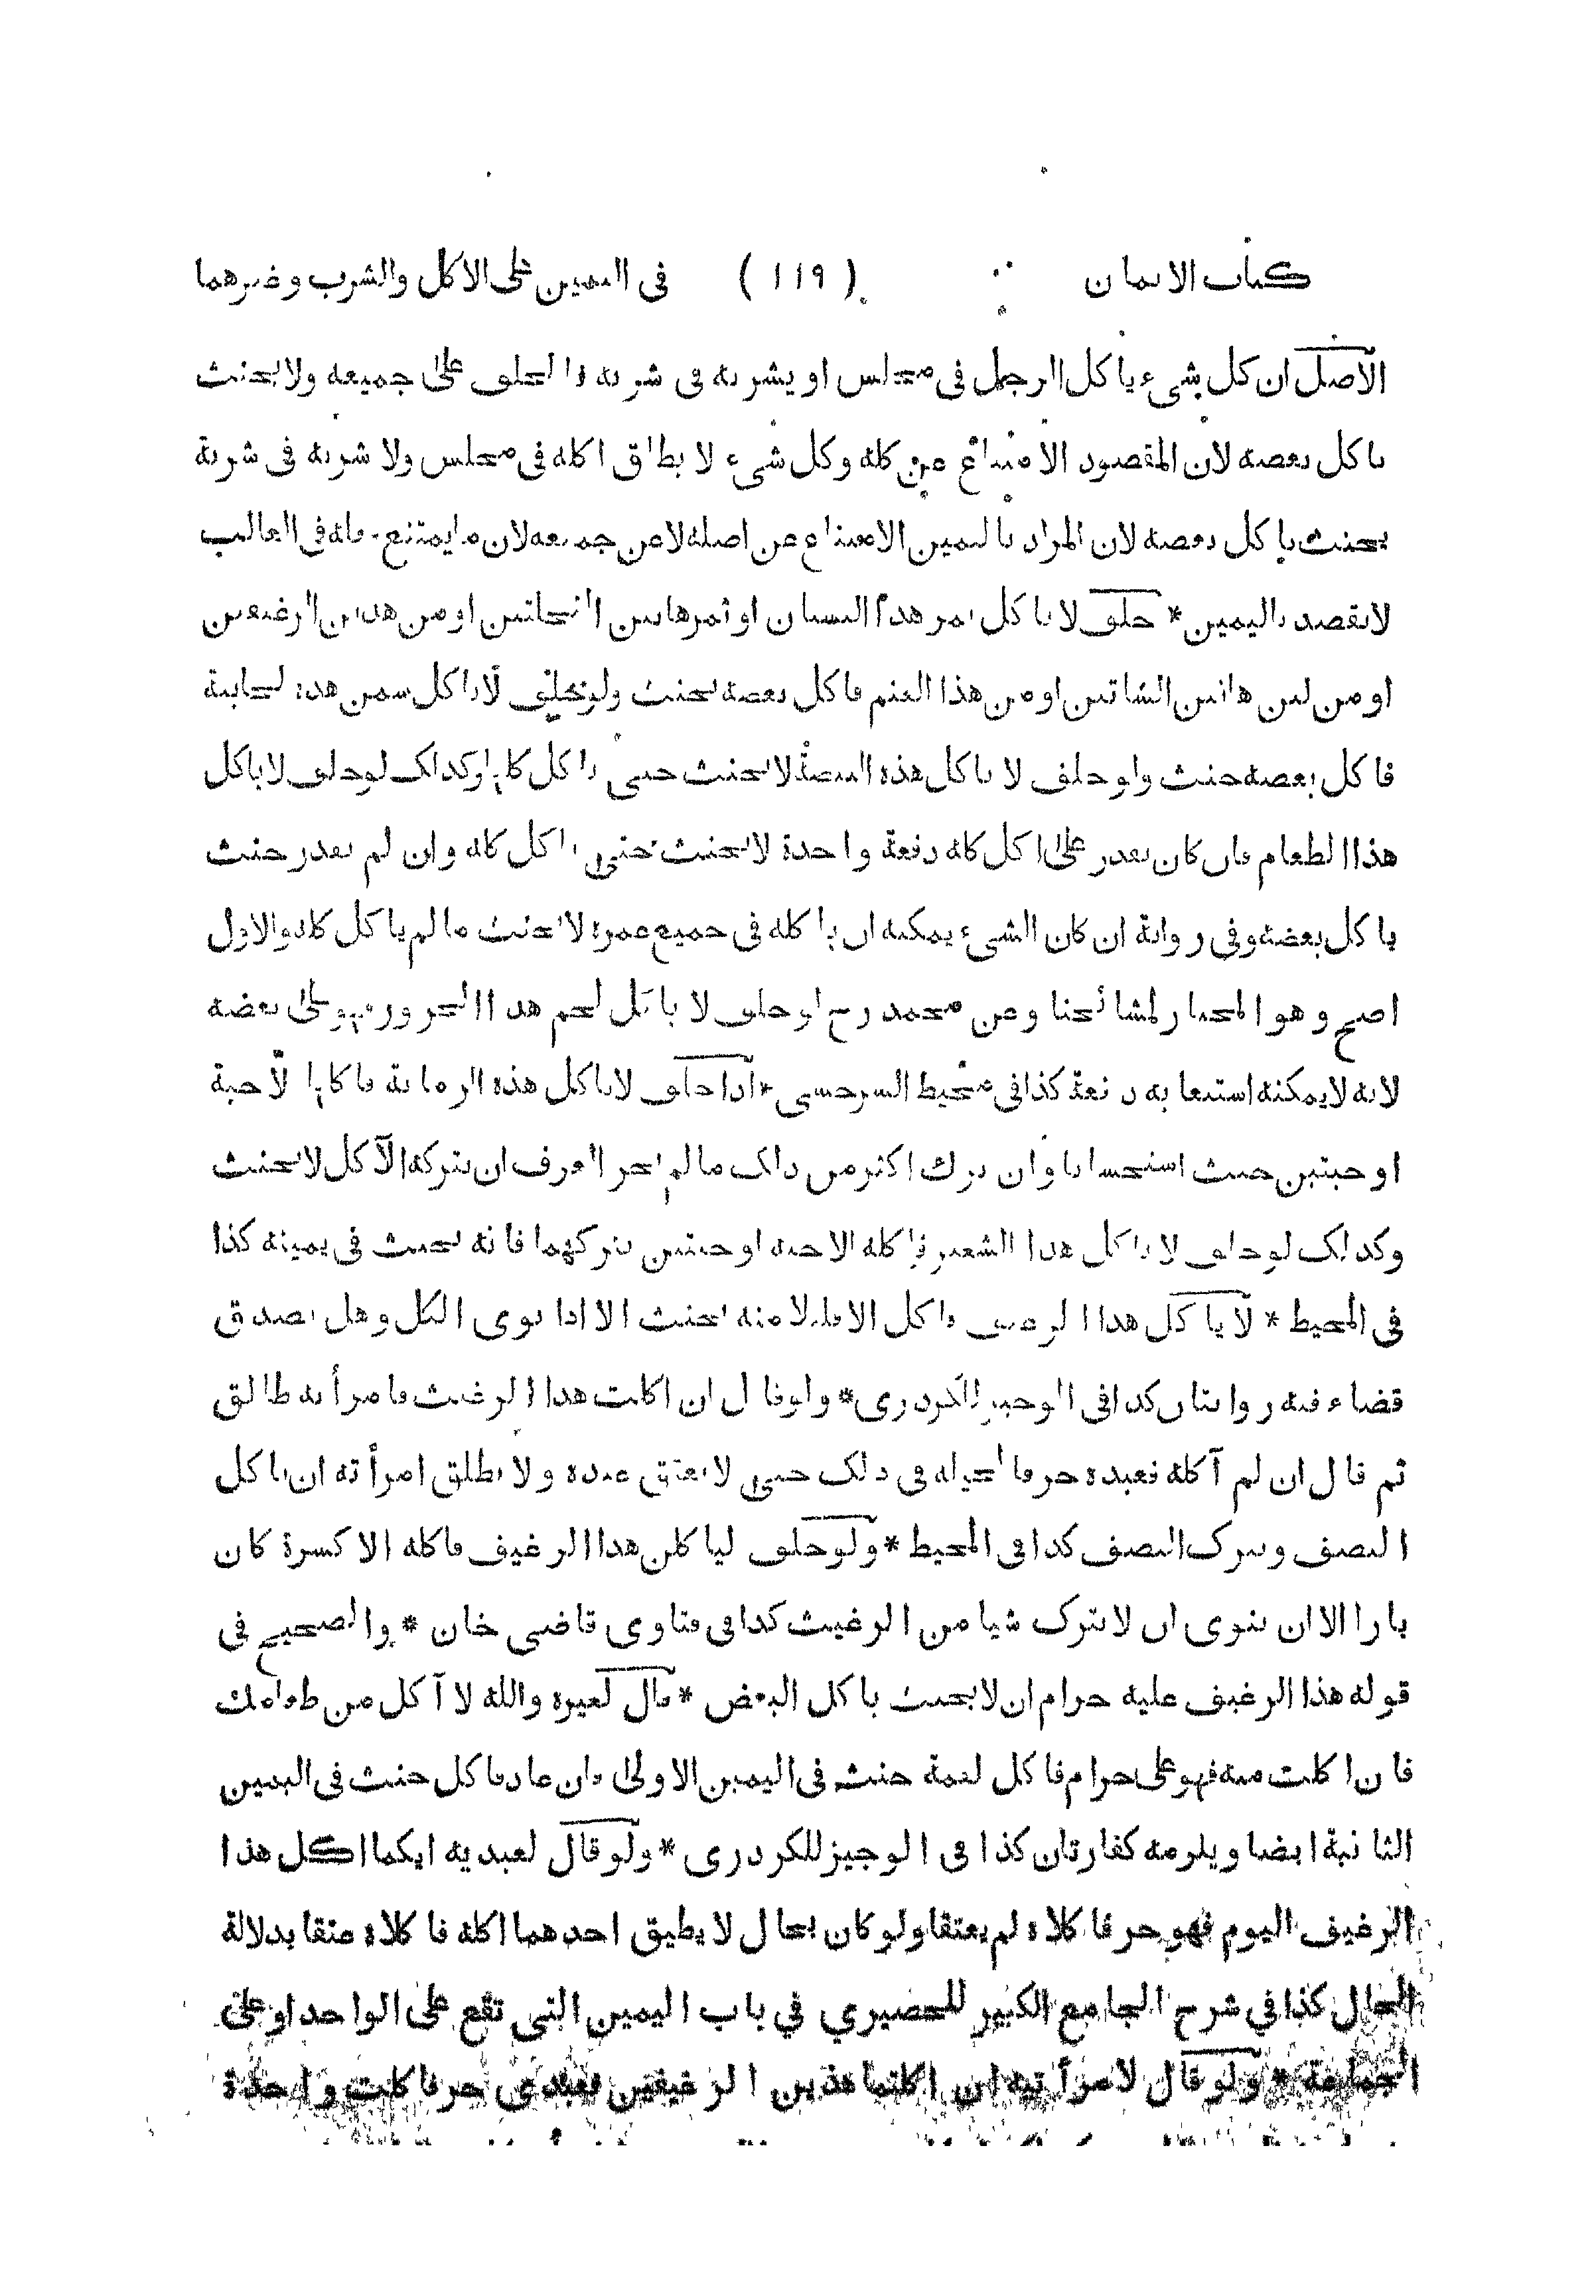 كتاب الايمان (١١٩) فى اليمين على الاكل والشرب وغيرهما
الاصل ان كل شىء ياكل الرجل فى مجلس او يشربه فى شربة فالحلف على جميعه ولا يحنث
باكل بعضه لان المقصود الامتناع عن كله وكل شىء لا يطاق اكله فى مجلس ولا شربه فى شربة
يحنث باكل بعضه لان المراد باليمين الامتناع عن اصله لا عن جميعه لان ما يمتنع فعله فى الغالب
لا يقصد باليمين * حلف لا ياكل ثمر هذا البستان او ثمر هاتين النخلتين او من هذين الرغيفين
او من لبن هاتين الشاتين او من هذا الغنم فاكل بعضه يحنث ولو حلف لا ياكل سمن هذه لخابية
فاكل بعضه حنث ولو حلف لا ياكل هذه البيضة لا يحنث حتى ياكل كلها وكذلك لو حلف لا ياكل
هذا الطعام فان كان يقدر على اكل كله دفعة واحدة لا يحنث حتى ياكل كله وان لم يقدر حنث
باكل بعضه وفى رواية ان كان الشىء يمكنه ان ياكله فى جميع عمره لا يحنث ما لم ياكل كله والاول
اصح وهو المختار لمشائخنا وعن محمد رح لو حلف لا ياكل لحم هذا الجزور فهو على بعضه
لانه لا يمكنه استيعابه دفعة كذا فى محيط السرخسى * اذا حلف لا ياكل هذه الرمانة فاكلها الا حبة
او حبتين حنث استحسانا وان ترك اكثر من ذلك ما لم يجر العرف ان يتركه الآكل لا يحنث
وكذلك لو حلف لا ياكل هذا الشعير فاكله الا حبة او حبتين يتركهما فانه يحنث فى يمينه كذا
فى المحيط * لا ياكل هذا الرغيف فاكل الا قليلا منه يحنث الا اذا نوى الكل وهل يصدق
قضاء فيه روايتان كذا فى الوجيز للكردرى * ولو قال ان اكلت هذا الرغيف فامرأته طالق
ثم قال ان لم آكله فعبده حر فالحيلة فى ذلك حتى لا يعتق عبده ولا يطلق امرأته ان ياكل
النصف ويترك النصف كذا فى المحيط * ولو حلف لياكلن هذا الرغيف فاكله الا كسرة كان
بارا الا ان ينوى ان لا يترك شيا من الرغيف كذا فى فتاوى قاضى خان * والصحيح فى
قوله هذا الرغيف عليه حرام ان لا يحنث باكل البعض * قال لغيره والله لا آكل من طعامك
فان اكلت منه فهو على حرام فاكل لقمة حنث فى اليمين الاولى وان عاد فاكل حنث فى اليمين
الثانية ايضا ويلزمه كفارتان كذا فى الوجيز للكردرى * ولو قال لعبديه ايكما اكل هذا
الرغيف اليوم فهو حر فاكلاه لم يعتقا ولو كان بحال لا يطيق احدهما اكله فاكلاه عتقا بدلالة
الحال كذا في شرح الجامع الكبير للحصيري في باب اليمين التى تقع على الواحد او على
الجماعة * ولو قال لامرأتيه ان اكلتما هذين الرغيفين فعبدى حر فاكلت واحدة